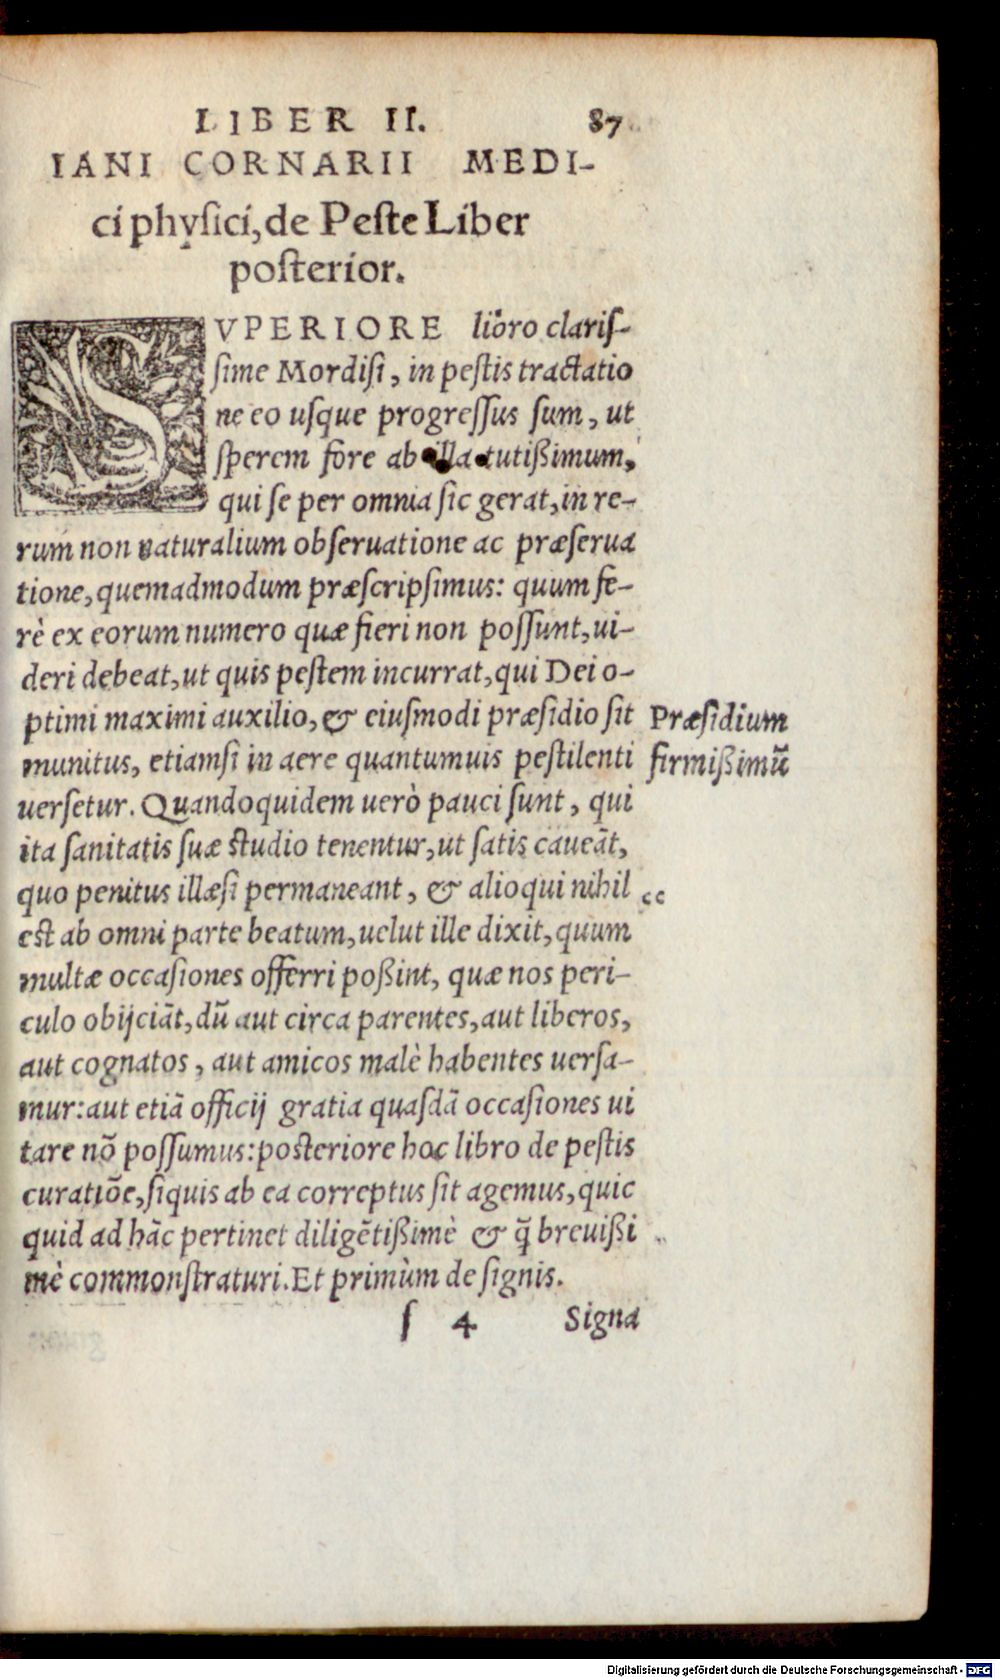 LIBER II. 87
IANI CORNARII MEDI-
ci physici, de Peste Liber
posterior.
SVPERIORE libro clariſ-
ſime Mordiſi, in peſtis tractatio
ne eo uſque progreſſus ſum, ut
ſperem fore ab illa tutißimum,
qui ſe per omnia ſic gerat, in re-
rum non naturalium obſeruatione ac præſerua
tione, quemadmodum præſcripſimus: quum fe-
rè ex eorum numero quæ fieri non poſſunt, ui-
deri debeat, ut quis peſtem incurrat, qui Dei o-
ptimi maximi auxilio, & eiuſmodi præſidio ſit
Præſidium
munitus, etiamſi in aere quantumuis peſtilenti
firmißimũ
uerſetur. Quandoquidem uerò pauci ſunt, qui
ita ſanitatis ſuæ ſtudio tenentur, ut ſatis caueãt,
quo penitus illæſi permaneant, & alioqui nihil
est ab omni parte beatum, uelut ille dixit, quum
multæ occaſiones offerri poßint, quæ nos peri-
culo obijciãt, dũ aut circa parentes, aut liberos,
aut cognatos, aut amicos malè habentes uerſa-
mur: aut etiã officij gratia quaſdã occaſiones ui
tare nõ poſſumus: poſteriore hoc libro de peſtis
curatiõe, ſiquis ab ea correptus ſit agemus, quic
quid ad hãc pertinet diligẽtißimè & q̃ breuißi
mè commonſtraturi. Et primùm de ſignis.
ſ 4 Signa
Digitalisierung gefördert durch die Deutsche Forschungsgemeinschaft - DFG